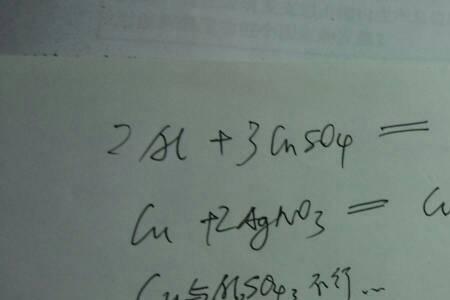 2Al + 3CuSO4 =
Cu + 2AgNO3 = Cu
Cu与Al2SO4, 不行...